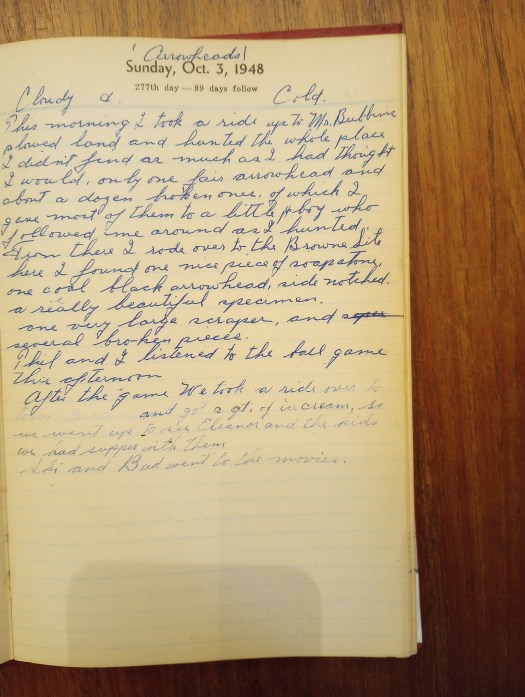 ! Arrowheads!
Sunday, Oct. 3, 1948
277th day — 89 days follow
Cloudy &. Cold.
This morning I took a ride up to Mr.
plowed land and hunted the whole place
I didn't find as much as I had thought
I would, only one fair arrowhead and
about a dozen broken ones. of which I
gave most of them to a little boy who
followed me around as I hunted,
From there I rode over to the Browne Site
here I found one nice piece of soapstone,
one coal black arrowhead, side notched.
a really beautiful specimen.
one very large scraper, and
several broken pieces.
Phil and I listened to the ball game
this afternoon
After the game We took a ride over to
and got a qt. of ice cream, so
we went up to see Eleanor and the kids
we had supper with them
and went to the movies.